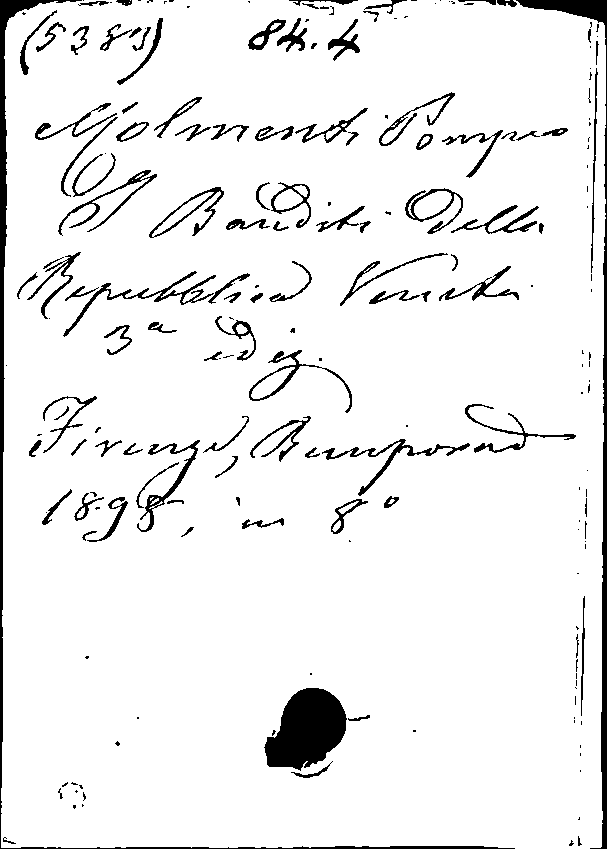 (5383) 84.4
Molmenti Pompeo
I Banditi della
Repubblica Veneta
3ª ediz.
Firenze, Bemporad
1898, in 8º